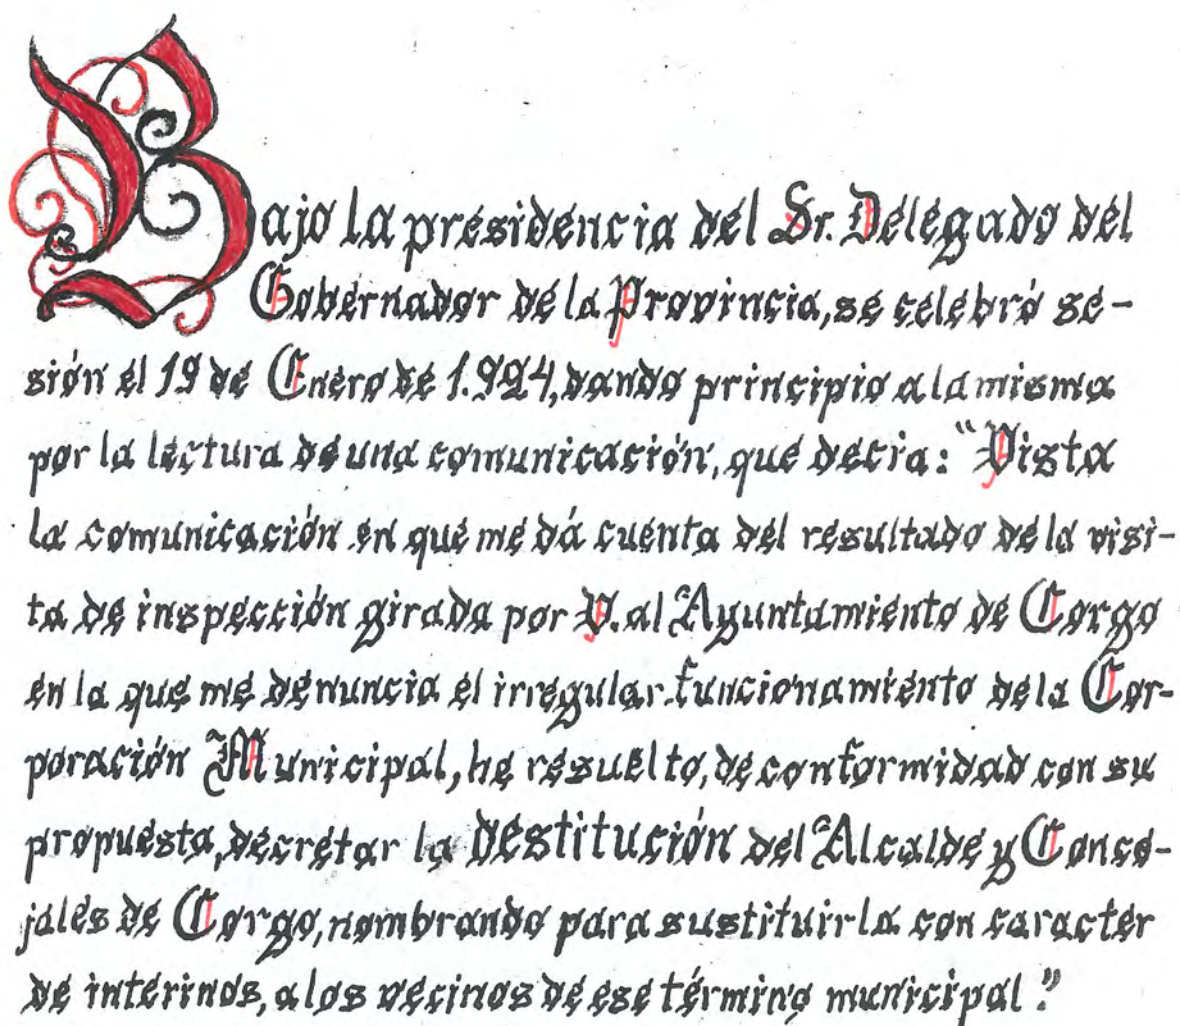 Bajo la presidencia del Sr. Delegado del
Gobernador de la Provincia, se celebró se-
sión el 19 de Enero de 1.924, dando principio a la misma
por la lectura de una comunicación, que decia: "Vista
la comunicación en que me dá cuenta del resultado de la visi-
ta de inspección girada por V. al Ayuntamiento de Corgo
en la que me denuncia el irregular funcionamiento dela Cor-
poración Municipal, he resuelto, de conformidad con su
propuesta, decretar la destitución del Alcalde y Conce-
jales de Corgo, nombrando para sustituirla con caracter
de interinos, a los vecinos de ese término municipal."